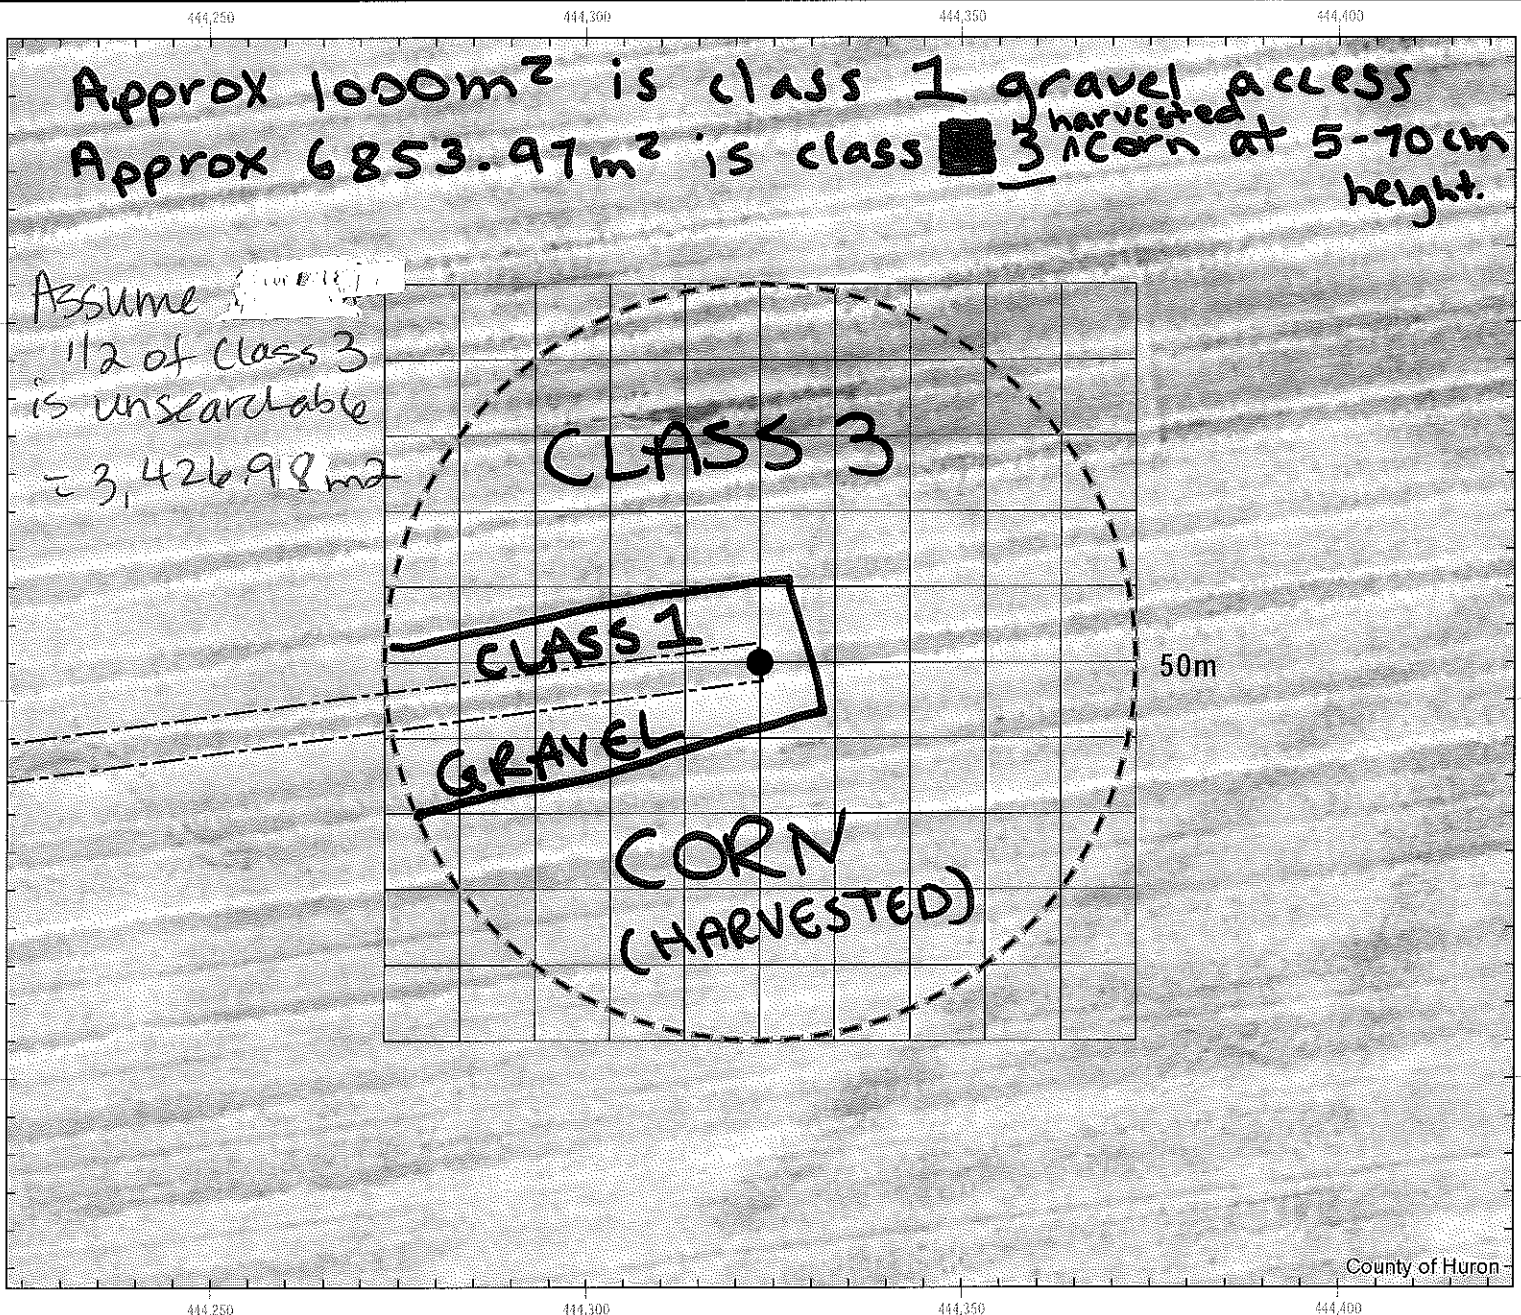 444,250 444,300 444,350 444,400
Approx 1000m² is class 1 gravel access
harvested
Approx 6853.97m² is class 3 ^corn at 5-70cm
height.
Assume
1/2 of Class 3
is unsearchable
= 3,426.98 m2
CLASS 3
CLASS 1
50m
GRAVEL
CORN
(HARVESTED)
County of Huron
444,250 444,300 444,350 444,400